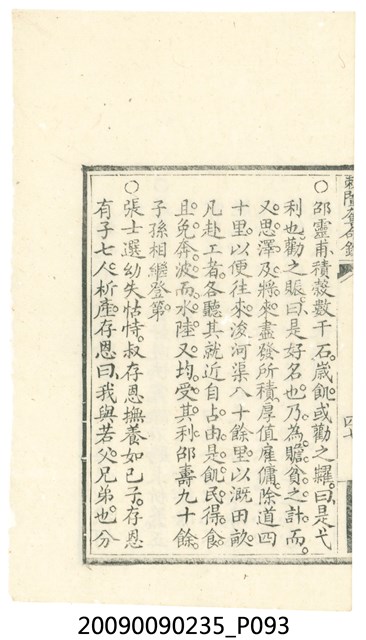 ○邵靈甫積穀數千石。歲飢。或勸之糶。曰是弋
利也。勸之賑。曰是好名也。乃為贍貧之計。而
又思澤及將來。盡發所積。厚值雇傭。除道四
十里。以便往來。浚河渠八十餘里。以溉田畝。
凡赴工者。各聽其就近自占。由是飢民得食。
且免奔波。而水陸又均受其利。邵壽九十餘。
子孫相繼登第。
○張士選幼失怙恃。叔存恩撫養如己子。存恩
有子七人。析產。存恩曰。我與若父兄弟也。分
20090090235_P093